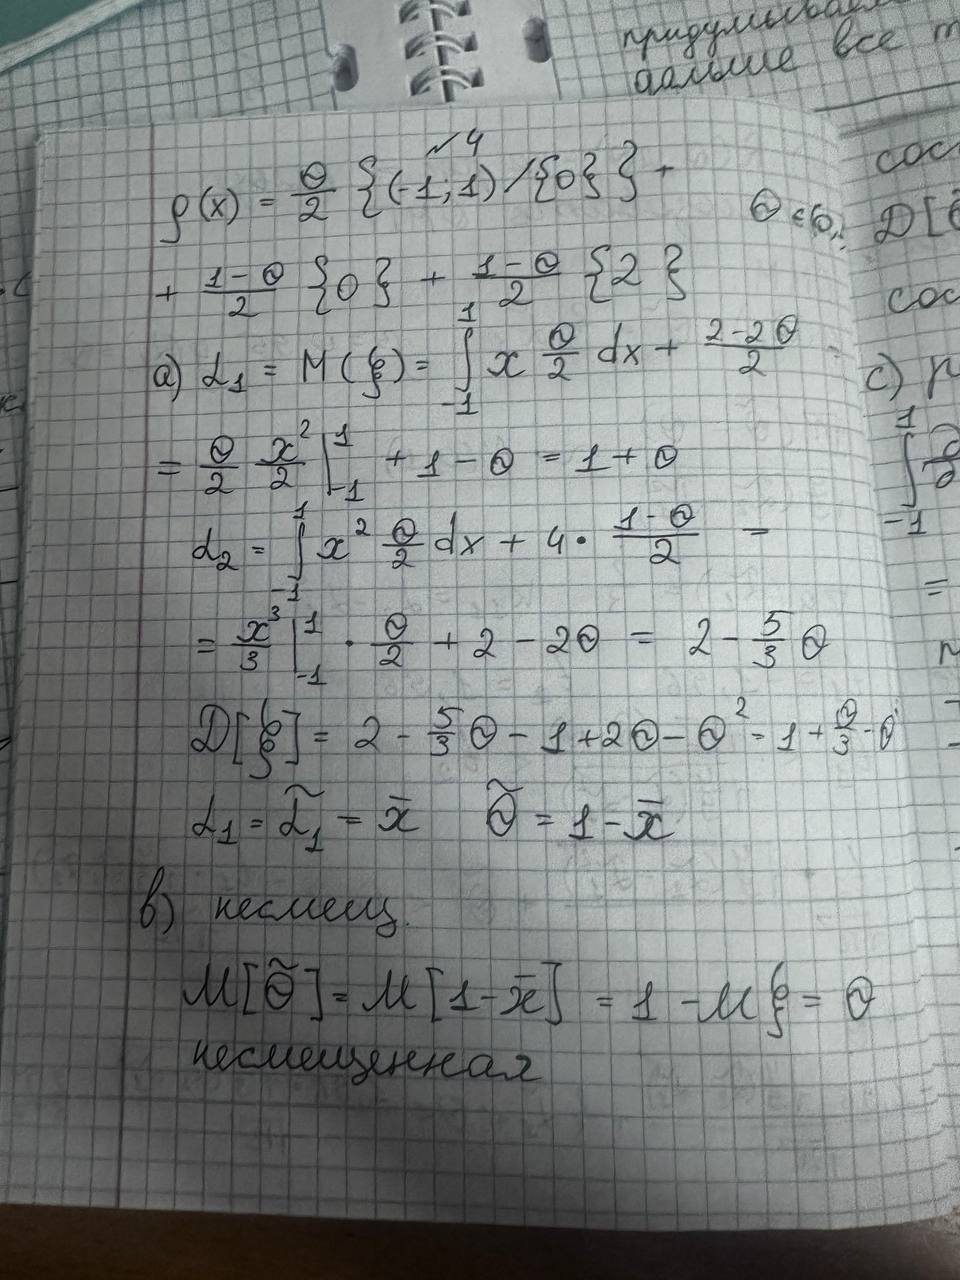 придумыва
дальше все т
№4
ρ(x) = θ/2 {(-1; 1) / {0} } +
θ ∈ (0,
+ (1-θ)/2 {0} + (1-θ)/2 {2}
а) α₁ = M(ξ) = ∫₋₁¹ x θ/2 dx + (2-2θ)/2 =
= θ/2 x²/2 |₋₁¹ + 1 - θ = 1 + θ
α₂ = ∫₋₁¹ x² θ/2 dx + 4 · (1-θ)/2 =
= x³/3 |₋₁¹ · θ/2 + 2 - 2θ = 2 - 5/3 θ
D[ξ] = 2 - 5/3 θ - 1 + 2θ - θ² = 1 + θ/3 - θ
α₁ = α̃₁ = x̄ θ̃ = 1 - x̄
в) несмещ.
M[θ̃] = M[1-x̄] = 1 - Mξ = θ
несмещенная
сос
D[
сос
с)
∫₋₁¹
=